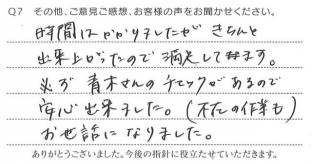 Q7 その他、ご意見ご感想、お客様の声をお聞かせください。
時間はかかりましたが きちんと
出来上がったので 満足してます。
必ず 青木さんの チェックが あるので
安心 出来ました。(不在の作業も)
お世話になりました。
ありがとうございました。今後の指針に役立たせていただきます。